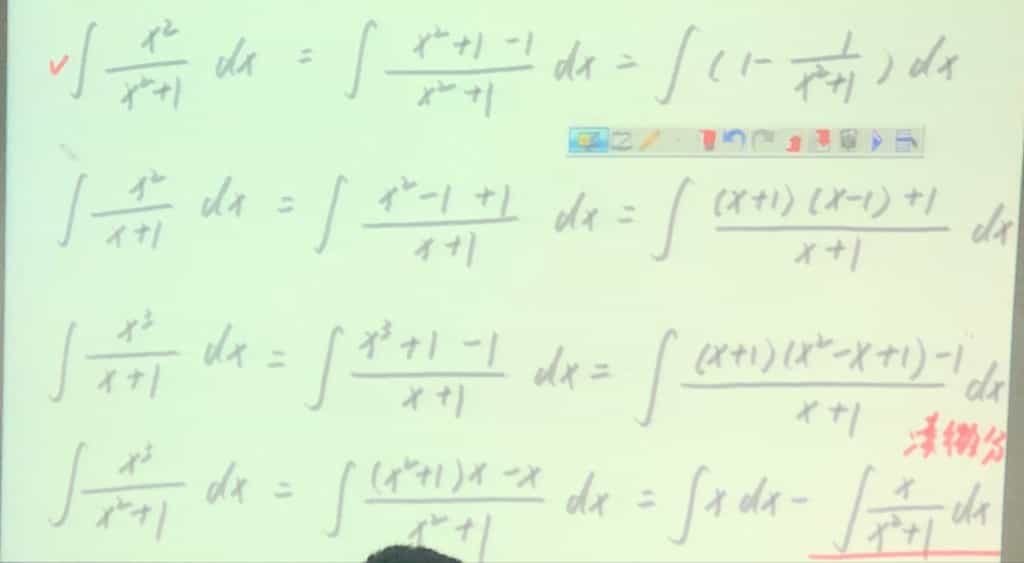 ✓∫ x²/(x²+1) dx = ∫ (x²+1-1)/(x²+1) dx = ∫ (1 - 1/(x²+1)) dx
∫ x²/(x+1) dx = ∫ (x²-1+1)/(x+1) dx = ∫ ((x+1)(x-1)+1)/(x+1) dx
∫ x³/(x+1) dx = ∫ (x³+1-1)/(x+1) dx = ∫ ((x+1)(x²-x+1)-1)/(x+1) dx
凑微分
∫ x³/(x²+1) dx = ∫ ((x²+1)x-x)/(x²+1) dx = ∫ x dx - ∫ x/(x²+1) dx